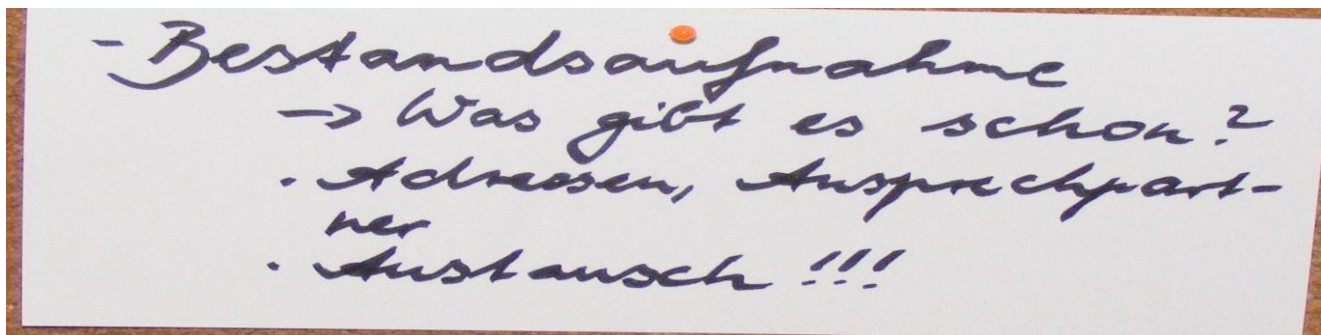 - Bestandsaufnahme
-> Was gibt es schon?
. Adressen, Ansprechpart-
ner
. Austausch !!!